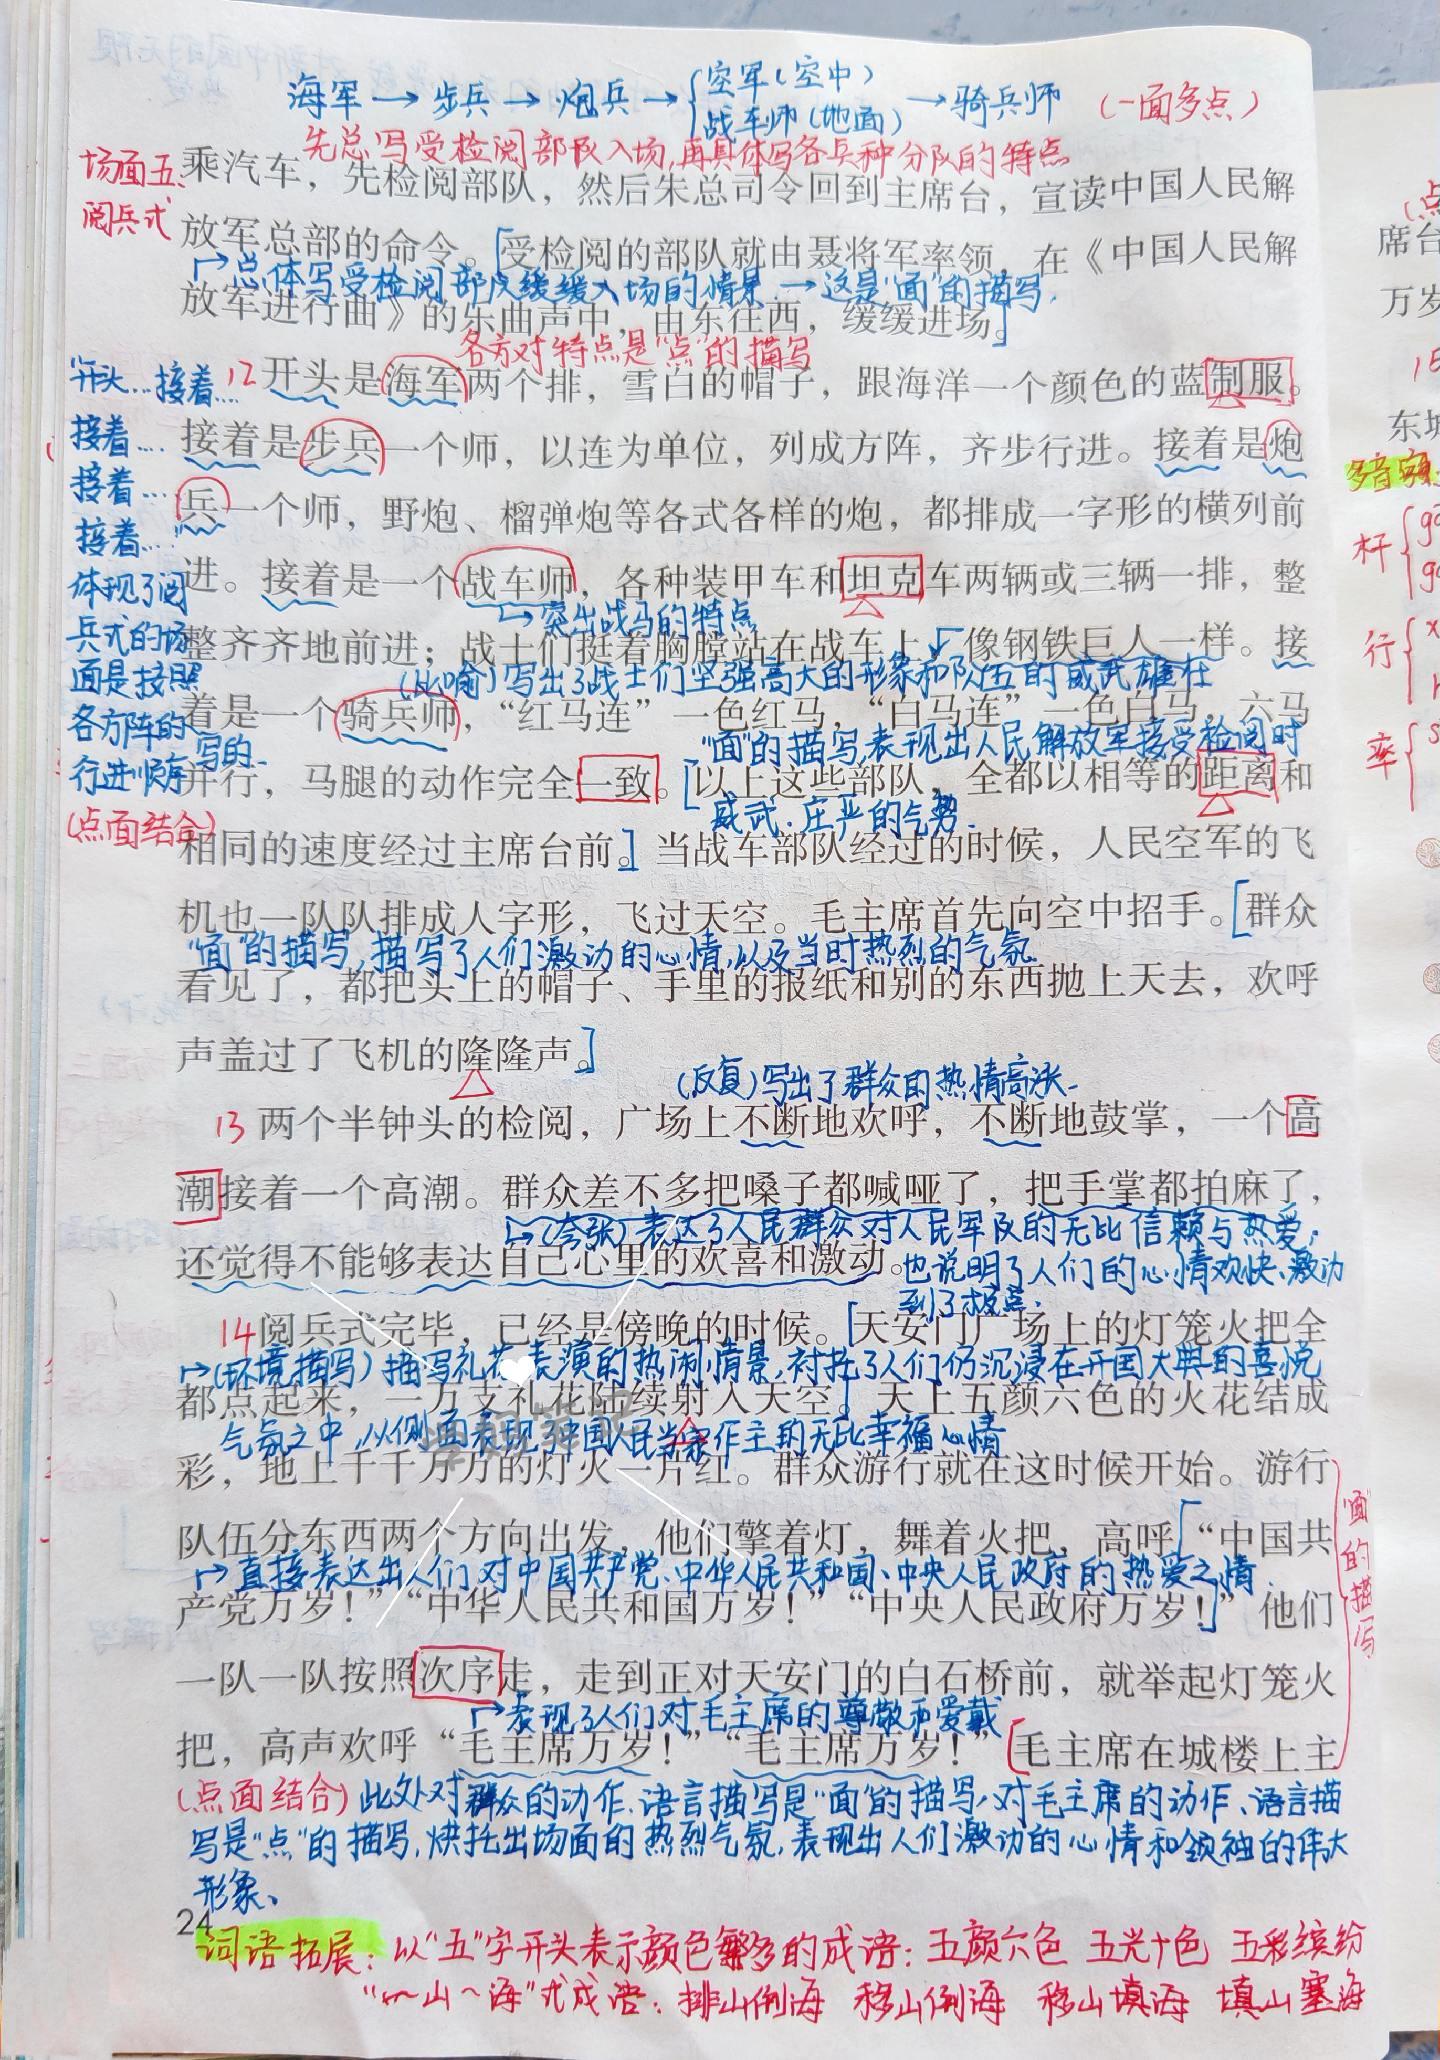 海军→步兵→炮兵→{空军(空中) 战车师(地面)→骑兵师 (一面多点)
先总写受检阅部队入场,再具体写各兵种分队的特点
场面五:
阅兵式
乘汽车，先检阅部队，然后朱总司令回到主席台，宣读中国人民解
放军总部的命令。[受检阅的部队就由聂将军率领，在《中国人民解
总体写受检阅部队缓缓入场的情景→这是“面”的描写.
放军进行曲》的乐曲声中，由东往西，缓缓进场。]
各方对特点是“点”的描写
12 开头是海军两个排，雪白的帽子，跟海洋一个颜色的蓝制服。
接着是步兵一个师，以连为单位，列成方阵，齐步行进。接着是炮
兵一个师，野炮、榴弹炮等各式各样的炮，都排成一字形的横列前
进。接着是一个战车师，各种装甲车和坦克车两辆或三辆一排，整
→突出战马的特点
整齐齐地前进；战士们挺着胸膛站在战车上，像钢铁巨人一样。接
(比喻)写出了战士们坚强高大的形象和队伍的威武雄壮
着是一个骑兵师，“红马连”一色红马，“白马连”一色白马，六马
“面”的描写,表现出人民解放军接受检阅时
并行，马腿的动作完全一致。[以上这些部队，全都以相等的距离和
威武、庄严的气势.
相同的速度经过主席台前。]当战车部队经过的时候，人民空军的飞
机也一队队排成人字形，飞过天空。毛主席首先向空中招手。[群众
“面”的描写,描写了人们激动的心情,以及当时热烈的气氛
看见了，都把头上的帽子、手里的报纸和别的东西抛上天去，欢呼
声盖过了飞机的隆隆声。]
“开头...接着...
接着...
接着...
接着...
体现了阅
兵式的场
面是按照
各方阵的
行进顺序写的.
(点面结合)
(反复)写出了群众的热情高涨.
13 两个半钟头的检阅，广场上不断地欢呼，不断地鼓掌，一个高
潮接着一个高潮。群众差不多把嗓子都喊哑了，把手掌都拍麻了，
→(夸张)表达了人民群众对人民军队的无比信赖与热爱;
还觉得不能够表达自己心里的欢喜和激动。
也说明了人们的心情欢快、激动
到了极点.
14 阅兵式完毕，已经是傍晚的时候。[天安门广场上的灯笼火把全
→(环境描写)描写礼花表演的热闹情景,衬托了人们仍沉浸在开国大典的喜悦
都点起来，一万支礼花陆续射入天空。]天上五颜六色的火花结成
气氛之中,从侧面表现中国人民当家作主的无比幸福心情
彩，地上千千万万的灯火一片红。群众游行就在这时候开始。游行
队伍分东西两个方向出发，他们擎着灯，舞着火把，高呼[“中国共
→直接表达出人们对中国共产党、中华人民共和国、中央人民政府的热爱之情.
产党万岁！”“中华人民共和国万岁！”“中央人民政府万岁！]”他们
一队一队按照次序走，走到正对天安门的白石桥前，就举起灯笼火
→表现了人们对毛主席的尊敬和爱戴
把，高声欢呼“毛主席万岁！”“毛主席万岁！”[毛主席在城楼上主
“面”的描写
(点面结合)此处对群众的动作、语言描写是“面”的描写,对毛主席的动作、语言描
写是“点”的描写,烘托出场面的热烈气氛,表现出人们激动的心情和领袖的伟大
形象、
24
词语拓展:以“五”字开头表示颜色繁多的成语:五颜六色 五光十色 五彩缤纷
“~山~海”式成语:排山倒海 移山倒海 移山填海 填山塞海
席台
万岁
15
东城
多音字
杆
行
率